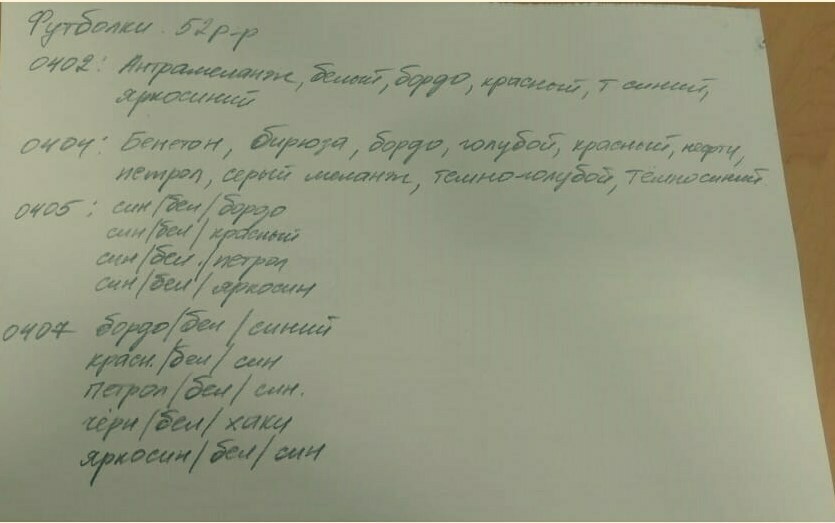 Футболки. 52 р-р
0402: Антрамеланж, белый, бордо, красный, т синий,
яркосиний
0404: Бенетон, бирюза, бордо, голубой, красный, нефти,
петрол, серый меланж, темно-голубой, тёмносиний
0405: син/бел/бордо
син/бел/красный
син/бел./петрол
син/бел/яркосин
0407 бордо/бел/синий
красн./бел/син
петрол/бел/син.
чёрн/бел/хаки
яркосин/бел/син